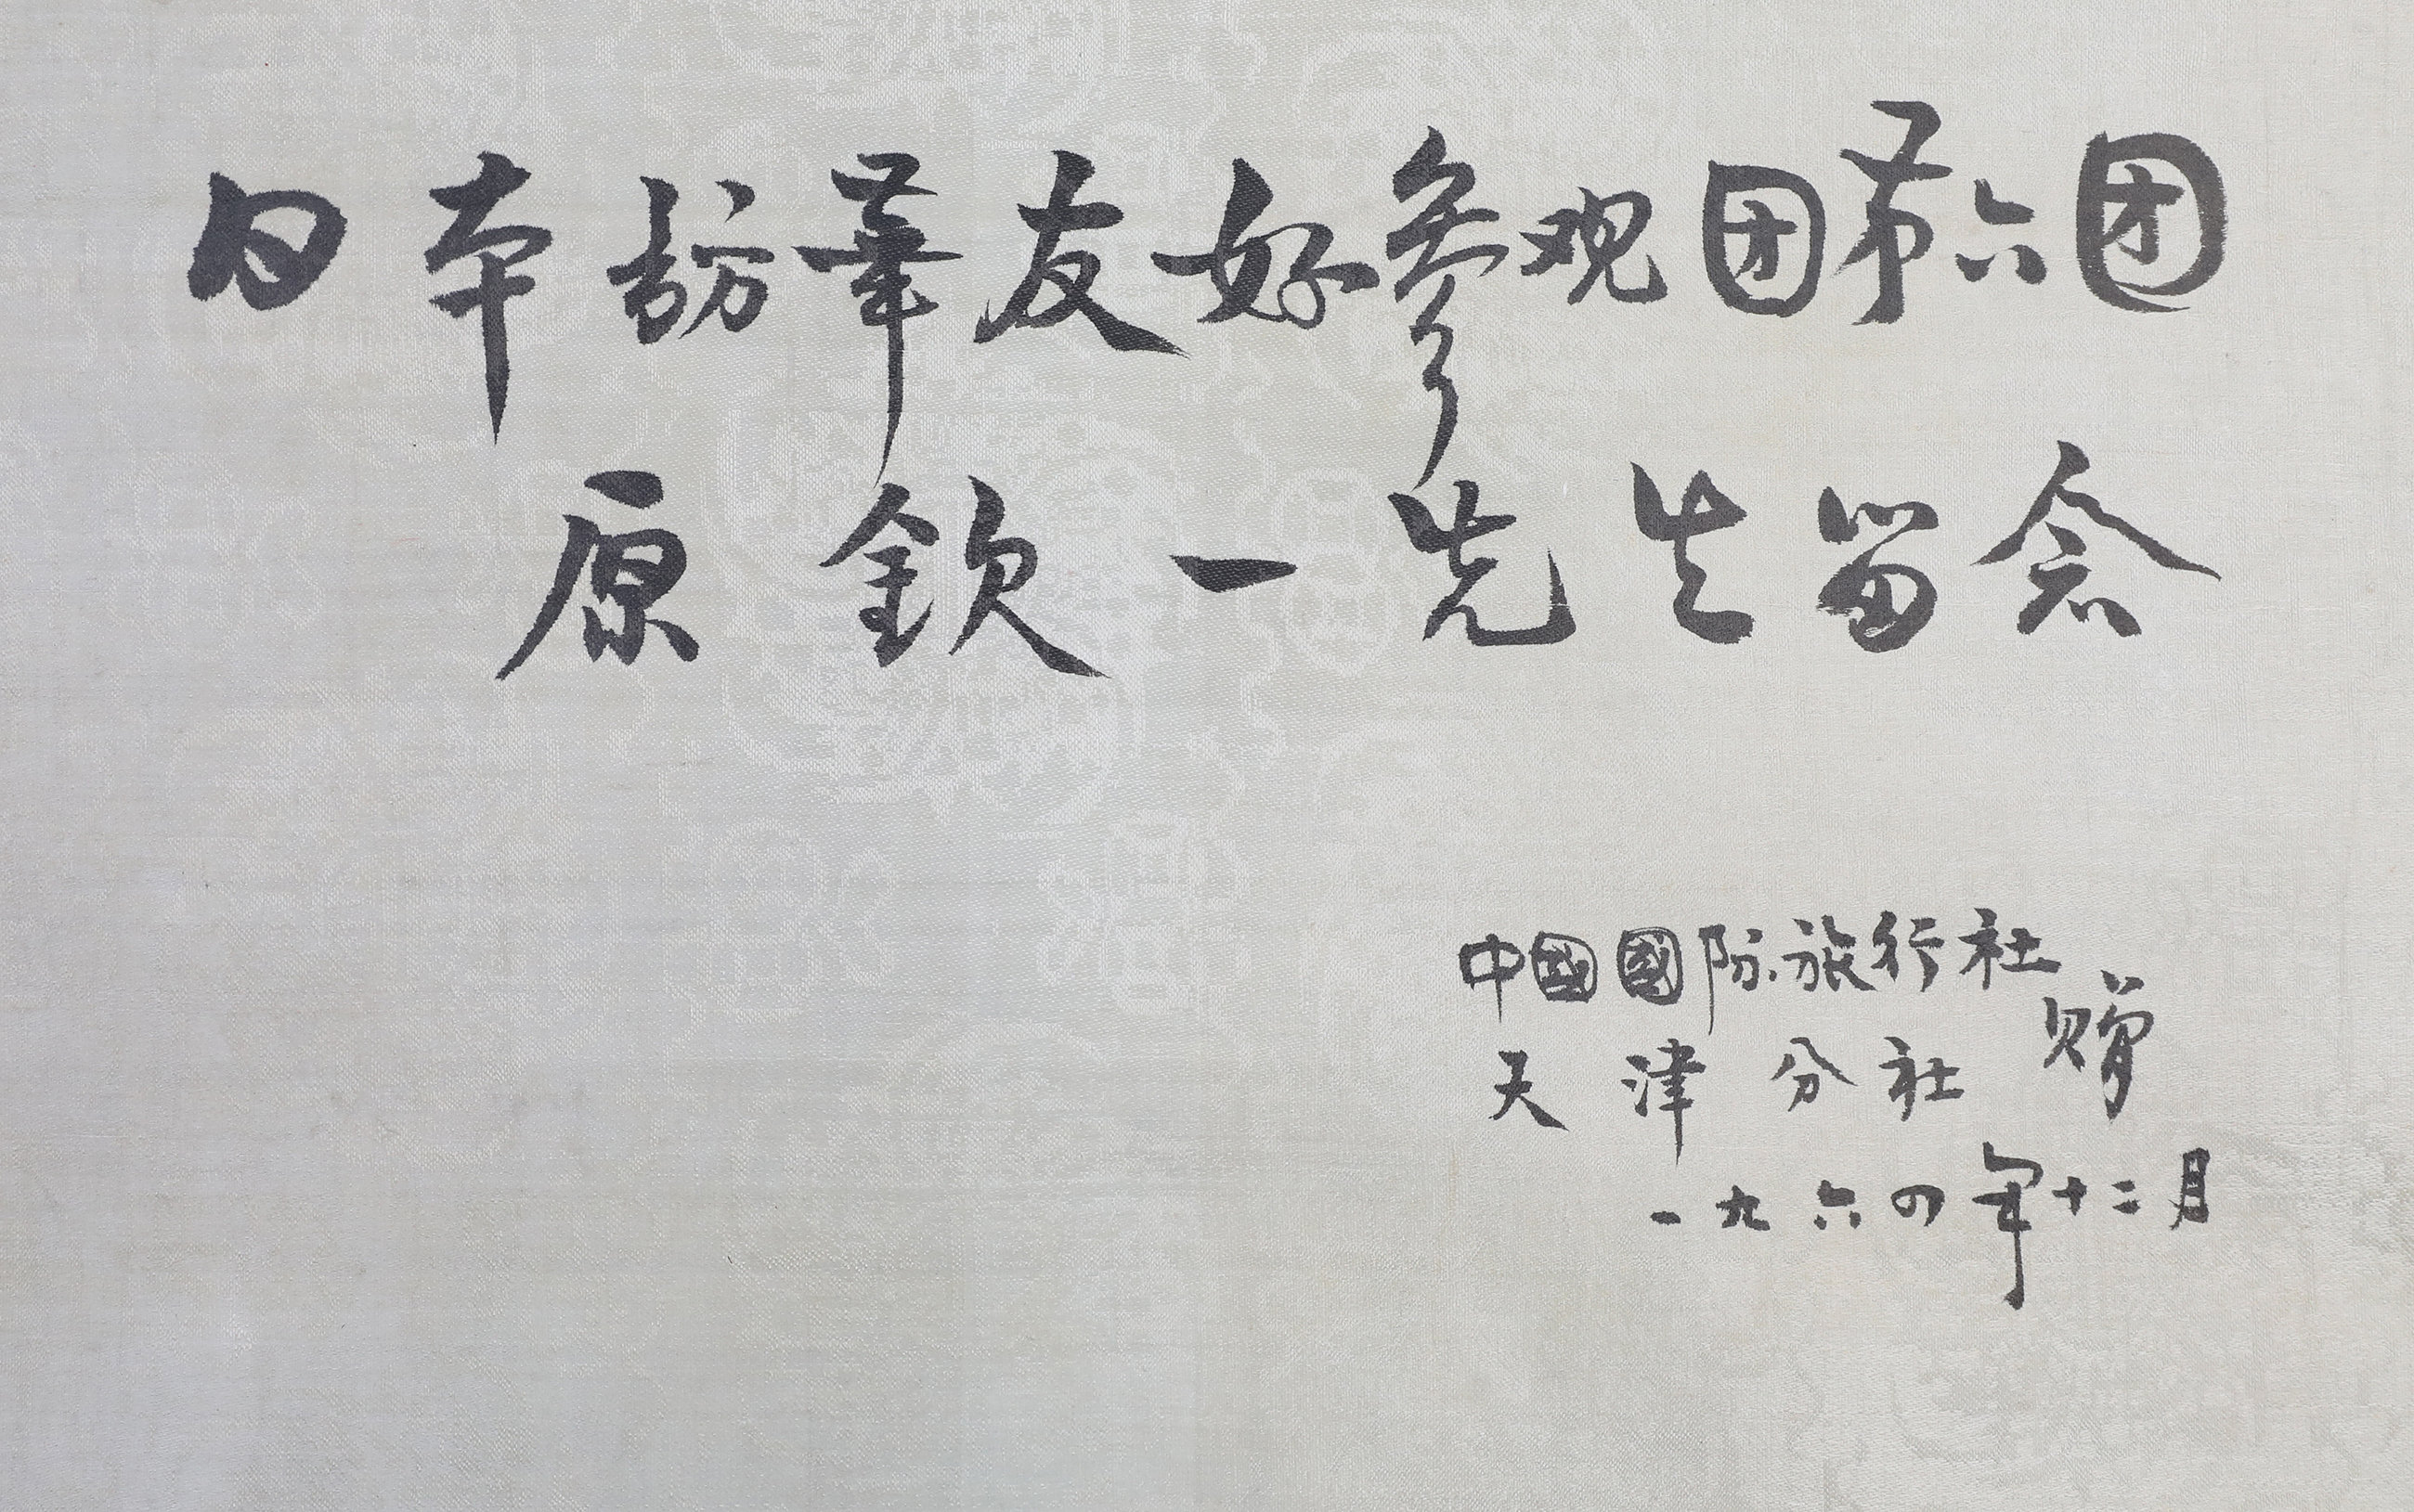 日本訪華友好參观团第六团
原欽一先生留念
中國國际旅行社
天津分社
赠
一九六四年十二月